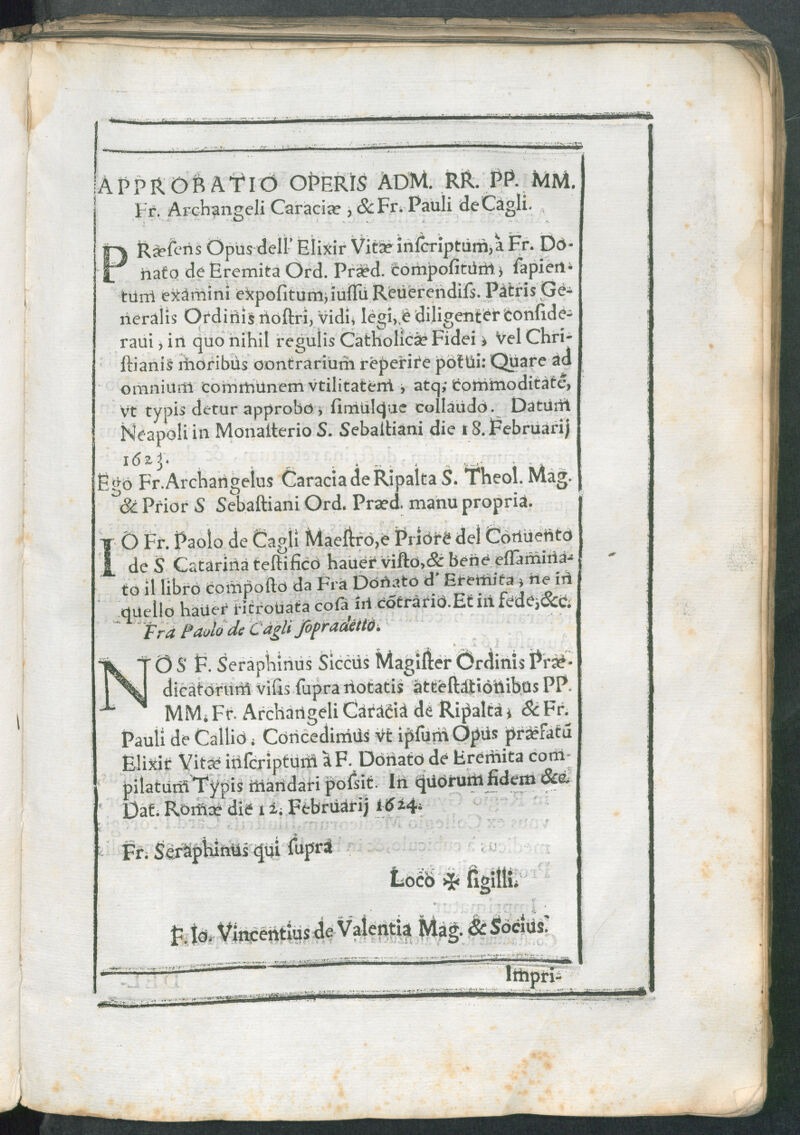 APPROBATIO OPERIS ADM. RR. PP. MM.
Fr. Archangeli Caraciæ, & Fr. Pauli de Cagli.
PRæſens Opus dell' Elixir Vitæ inſcriptum, à Fr. Do-
nato de Eremita Ord. Præd. compoſitum, ſapien-
tum examini expoſitum, iuſſu Reuerendiſs. Patris Ge-
neralis Ordinis noſtri, vidi, legi, è diligenter conſide-
raui, in quo nihil regulis Catholicæ Fidei, vel Chri-
ſtianis moribus oontrarium reperire potui: Quare ad
omnium communem vtilitatem, atq; commoditatē,
vt typis detur approbo, ſimulque collaudo. Datum
Neapoli in Monaſterio S. Sebaſtiani die 18. Februarij
1623.
Ego Fr. Archangelus Caracia de Ripalta S. Theol. Mag.
& Prior S Sebaſtiani Ord. Præd. manu propria.
IO Fr. Paolo de Cagli Maeſtro, e Priore del Conuento
de S Catarina teſtifico hauer viſto, & bene eſſamina-
to il libro compoſto da Fra Donato d' Eremita, ne in
quello hauer ritrouata coſa in cōtrario. Et in fede, &c.
Fra Paolo de Cagli ſopradetto.
NOS F. Seraphinus Siccus Magiſter Ordinis Præ-
dicatorum viſis ſupra notatis atteſtationibus PP.
MM. Fr. Archangeli Caracia de Ripalta, & Fr.
Pauli de Callio. Concedimus vt ipſum Opus præfatū
Elixir Vitæ inſcriptum à F. Donato de Eremita com-
pilatum Typis mandari poſsit. In quorum fidem &c.
Dat. Romæ die 12. Februarij 1624.
Fr. Seraphinus qui ſupra
Loco ✠ ſigilli.
F. Io. Vincentius de Valentia Mag. & Socius.
Impri-